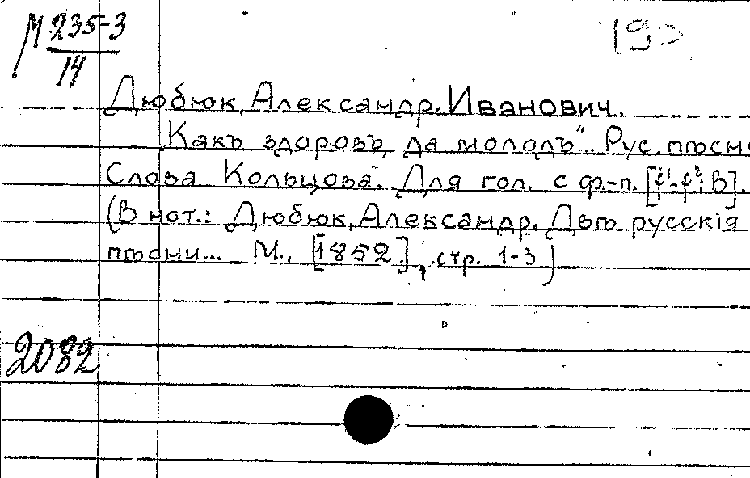 М 235-3
14
Дюбюк, Александр Иванович.
"Какъ здоровъ да молодъ". Рус. пѣсня
Слова Кольцова. Для гол. с ф.-п.
(В нот.: Дюбюк, Александр. Двѣ русскія
пѣсни... М., [1852], стр. 1-3)
2082